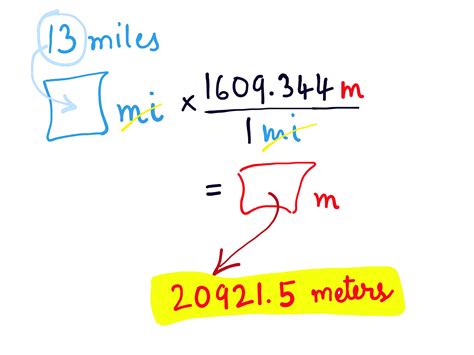 13 miles
mi × 1609.344 m
1 mi
= m
20921.5 meters